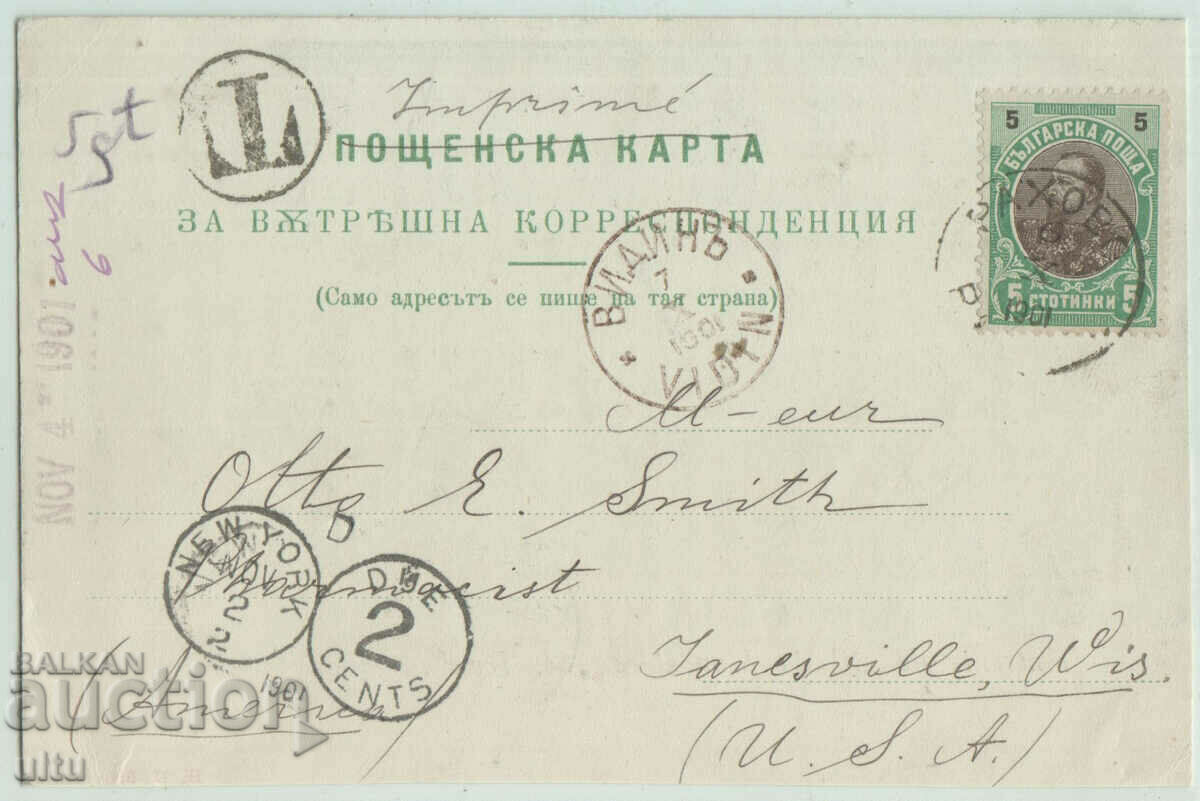 T
Imprimé
ПОЩЕНСКА КАРТА
ЗА ВѪТРѢШНА КОРРЕСПОНДЕНЦИЯ
(Само адресътъ се пише на тая страна)
5 5
БЪЛГАРСКА ПОЩА
5 СТОТИНКИ 5
1901
ВИДИНЪ
7
X
1901
VIDIN
5 ct
6
NOV 4 - 1901
M-eur
Otto E. Smith
Pharmacist
Janesville, Wis.
(America)
(U. S. A.)
D
NEW YORK
NOV
2
2
1901
DUE
2
CENTS
BALKAN
auction
ultu